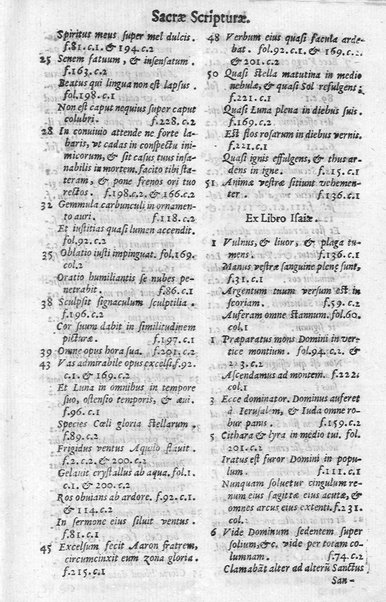 Sacræ Scripturæ.
Spiritus meus super mel dulcis.
f.81.c.1. & 194.c.2
25 Senem fatuum, & insensatum.
f.163.c.2
Beatus qui lingua non est lapsus.
fol.198.c.1
Non est caput nequius super caput
colubri. f.228.c.2
28 In conuiuio attende ne forte la-
baris, vt cadas in conspectu ini-
micorum, & sit casus tuus insa-
nabilis in mortem. facito tibi sta-
teram, & pone frenos ori tuo
rectos. f.198.c.2, & 166.c.2
32 Gemmula carbunculi in ornamen-
to auri. f.118.c.2
Et iustitias quasi lumen accendit.
fol.92.c.2
35 Oblatio iusti impinguat. fol.169.
col.1
Oratio humiliantis se nubes pe-
netrabit. f.86.c.1
38 Sculpsit signaculum sculptilia.
f.196.c.2
Cor suum dabit in similitudinem
picturæ. f.197.c.1
39 Omne opus hora sua. f.201.c.2
43 Vas admirabile opus excelsi. f.92.
c.1. & 169.c.2
Et Luna in omnibus in tempore
suo, ostensio temporis, & æui.
f.96.c.1
Species Cœli gloria stellarum.
f.89.c.2
Frigidus ventus Aquilo flauit.
f.2.c.2, & 200.c.2
Gelauit crystallus ab aqua. fol.1.
c.1. & 200.c.2
Ros obuians ab ardore. f.92.c.1.
& 114.c.2
In sermone eius siluit ventus.
f.81.c.1
45 Excelsum fecit Aaron fratrem,
circumcinxit eum zona gloria.
f.215.c.1
48 Verbum eius quasi facula arde-
bat. fol.92.c.1, & 169.c.2.
& 201.c.2
50 Quasi stella matutina in medio
nebulæ, & quasi Sol refulgens.
f.221.c.1
Quasi Luna plena in diebus suis.
f.169.c.2
Est flos rosarum in diebus vernis.
f.221.c.1
Quasi ignis effulgens, & thus ar-
dens in igne. f.15.c.1
51 Animæ vestræ sitiunt vehemen-
ter. f.136.c.1
Ex Libro Isaiæ.
1 Vulnus, & liuor, & plaga tu-
mens. f.136.c.1
Manus vestræ sanguine plenę sunt.
f.31.c.1
Argentum tuum versum est in
scoriam. f.59.c.2
Auferam omne stannum. fol.60.
col.1
1 Præparatus mons Domini in ver-
tice montium. fol.94.c.2. &
223.c.1
Ascendamus ad montem. f.222.
col.1
3 Ecce dominator Dominus auferet
à Ierusalem, & Iuda omne ro-
bur panis. f.159.c.2
5 Cithara & lyra in medio tui. fol.
201.c.2
Iratus est furor Domini in popu-
lum. f.111.c.1
Nunquam soluetur cingulum re-
num eius sagittæ eius acutæ, &
omnes arcus eius extenti. f.231.
col.1
6 Vide Dominum sedentem super
solium, &c. vide per totam co-
lumnam. f.74.c.2
Clamabāt alter ad alterū Sanctus
San-